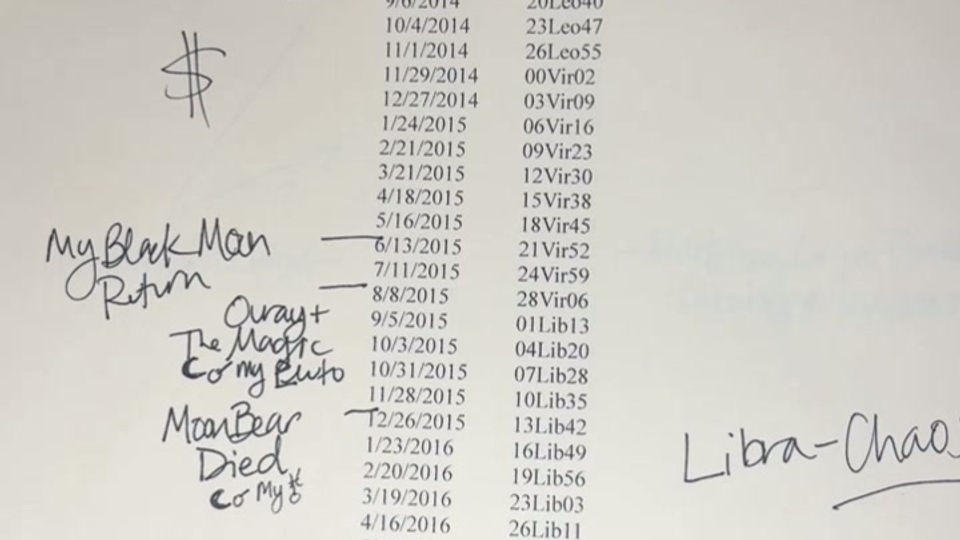 9/6/2014 20Leo40
10/4/2014 23Leo47
11/1/2014 26Leo55
$
11/29/2014 00Vir02
12/27/2014 03Vir09
1/24/2015 06Vir16
2/21/2015 09Vir23
3/21/2015 12Vir30
4/18/2015 15Vir38
5/16/2015 18Vir45
My Black Moon
6/13/2015 21Vir52
Return
7/11/2015 24Vir59
8/8/2015 28Vir06
Ouray +
9/5/2015 01Lib13
The Magic
10/3/2015 04Lib20
my Pluto
10/31/2015 07Lib28
11/28/2015 10Lib35
Moon Bear
12/26/2015 13Lib42
Died
1/23/2016 16Lib49
Libra-Chaos
2/20/2016 19Lib56
My
3/19/2016 23Lib03
4/16/2016 26Lib11